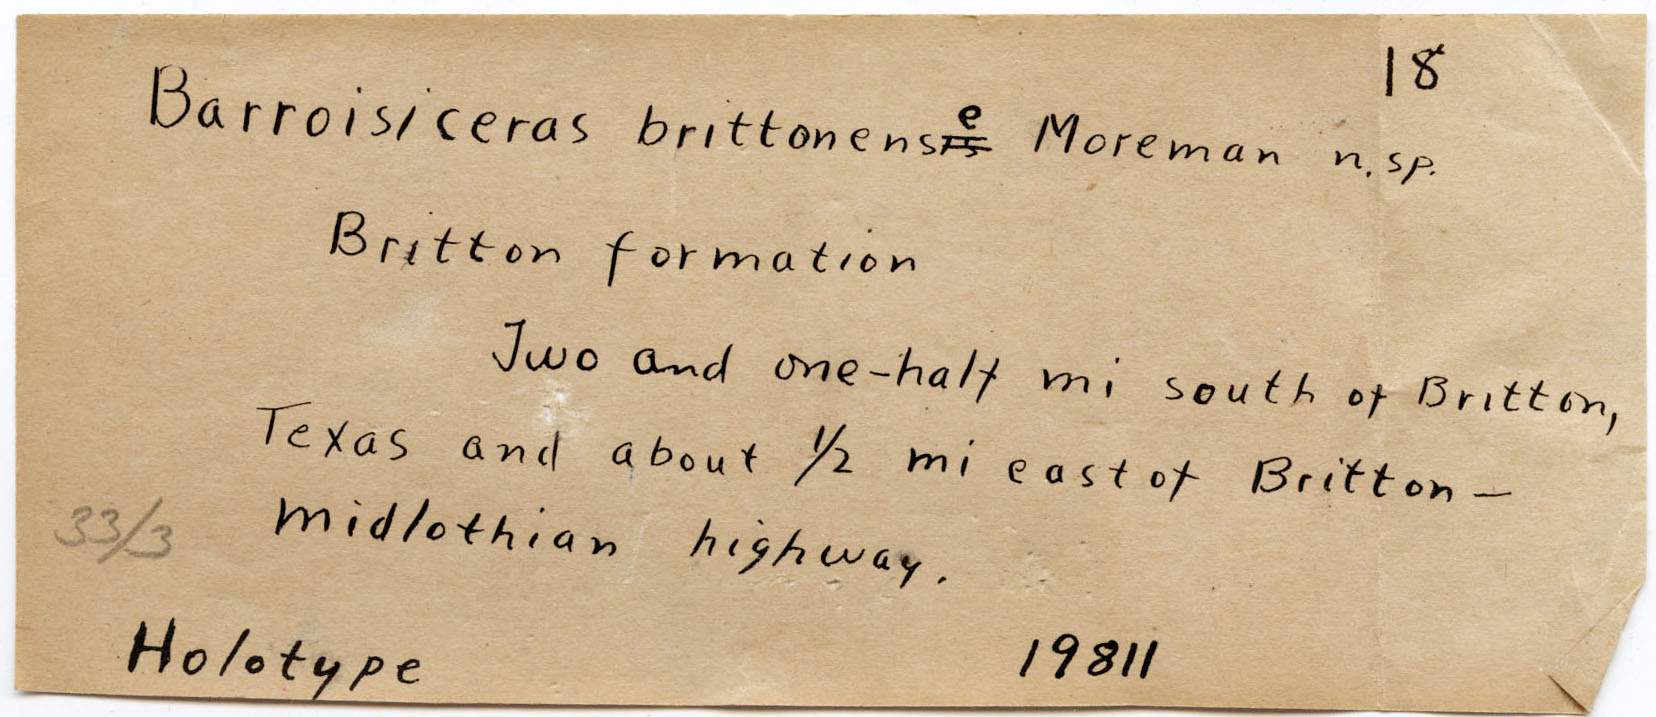 18
Barroisiceras brittonense Moreman n.sp.
Britton formation
Two and one-half mi south of Britton,
Texas and about 1/2 mi east of Britton-
midlothian highway.
33/3
Holotype 19811